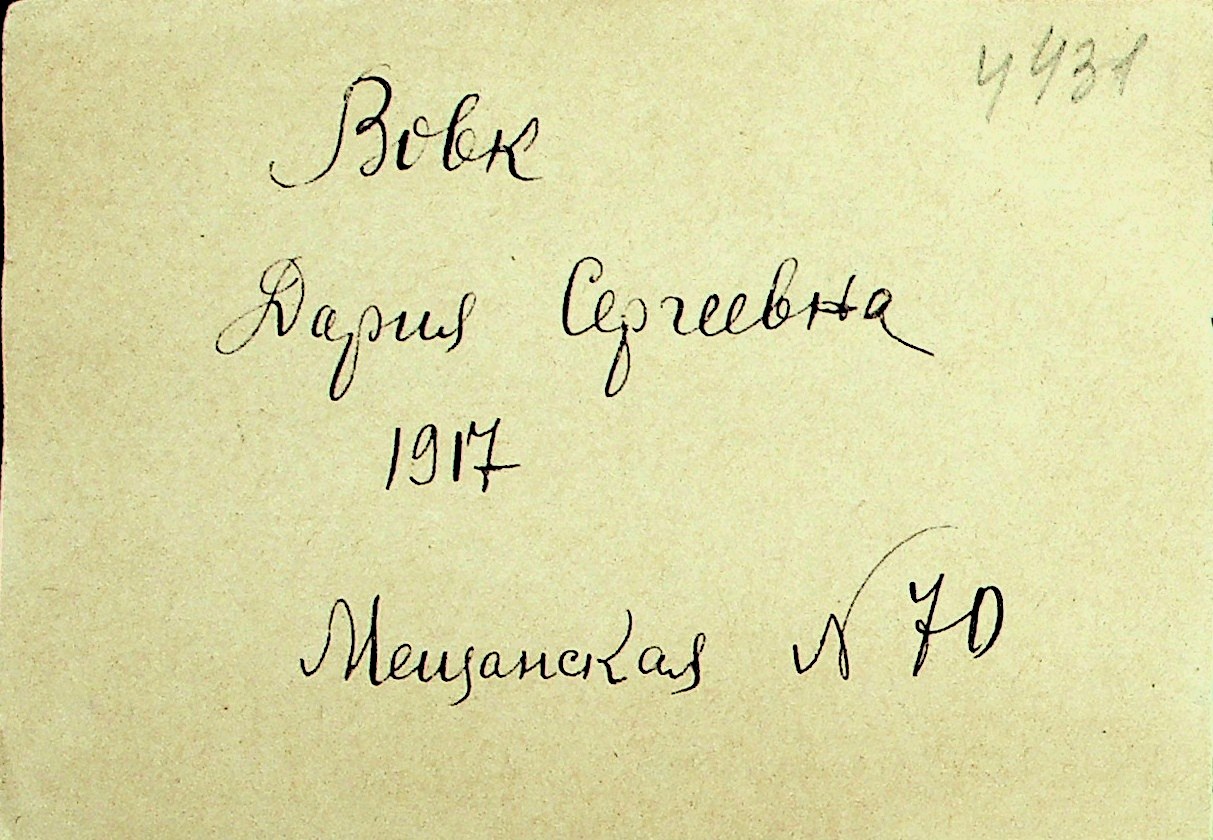 4431
Вовк
Дария Сергеевна
1917
Мещанская № 70